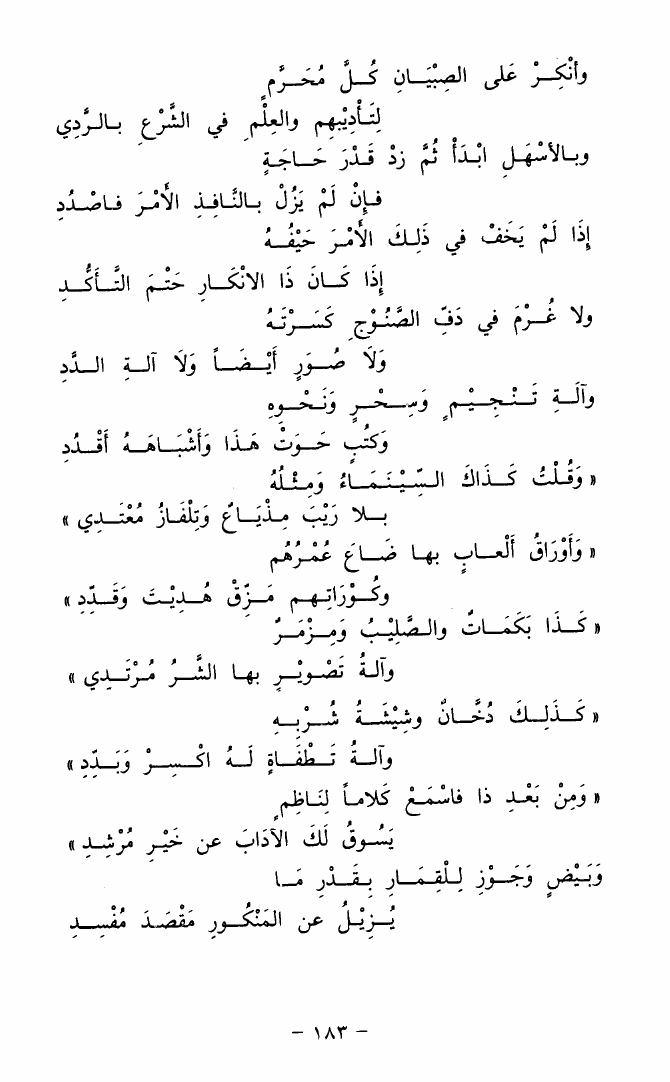 وأنْكِرْ عَلى الصِبْيَانِ كُلَّ مُحَرَّمٍ
لِتَأدِيْبِهِم والعِلْمِ في الشَّرْعِ بالرَّدِي
وبالأسْهَلِ ابْدَأْ ثُمَّ زِدْ قَدْرَ حَاجَةٍ
فإنْ لَمْ يَزُلْ بالنَّافِذِ الأمْرَ فاصْدُدِ
إذَا لَمْ يَخَفْ في ذَلِكَ الأمْرَ حَيْفَهُ
إذَا كَانَ ذَا الانْكَارِ حَتْمَ التَّأكُّدِ
ولا غُرْمَ في دَفِّ الصُّنُوْجِ كَسَرْتَهُ
وَلَا صُوَرٍ أيْضَاً وَلَا آلةِ الدَّدِ
وآلَةِ تَنْجِيْمٍ وَسِحْرٍ وَنَحْوِهِ
وَكُتْبٍ حَوَتْ هَذَا وَأشْبَاهَهُ أقْدُدِ
« وَقُلْتُ كَذَاكَ السِّيْنَمَاءُ وَمِثْلُهُ
بلا رَيْبَ مِذْيَاعٌ وَتِلْفَازُ مُعْتَدِي »
« وَأوْرَاقُ ألْعابٍ بها ضَاعَ عُمْرُهُم
وكُوْرَاتِهِم مَزِّقْ هُدِيْتَ وَقَدِّدِ »
« كَذَا بَكَمَاتٌ والصَّلِيْبُ وَمِزْمَرٌ
وآلةُ تَصْوِيْرٍ بها الشَّرُ مُرْتَدِي »
« كَذَلِكَ دُخَّانٌ وشِيْشَةُ شُرْبِهِ
وآلةُ تَطْفَاةٍ لَهُ اكْسِرْ وَبَدِّدِ »
« وَمِنْ بَعْدِ ذا فاسْمَعْ كَلاماً لِنَاظِمٍ
يَسُوقُ لَكَ الآدَابَ عن خَيْرِ مُرْشِدِ »
وَبَيْضٍ وَجَوْزٍ لِلْقِمَارِ بِقَدْرِ مَا
يُزِيْلُ عن المَنْكُورِ مَقْصَدَ مُفْسِدِ
– ١٨٣ –